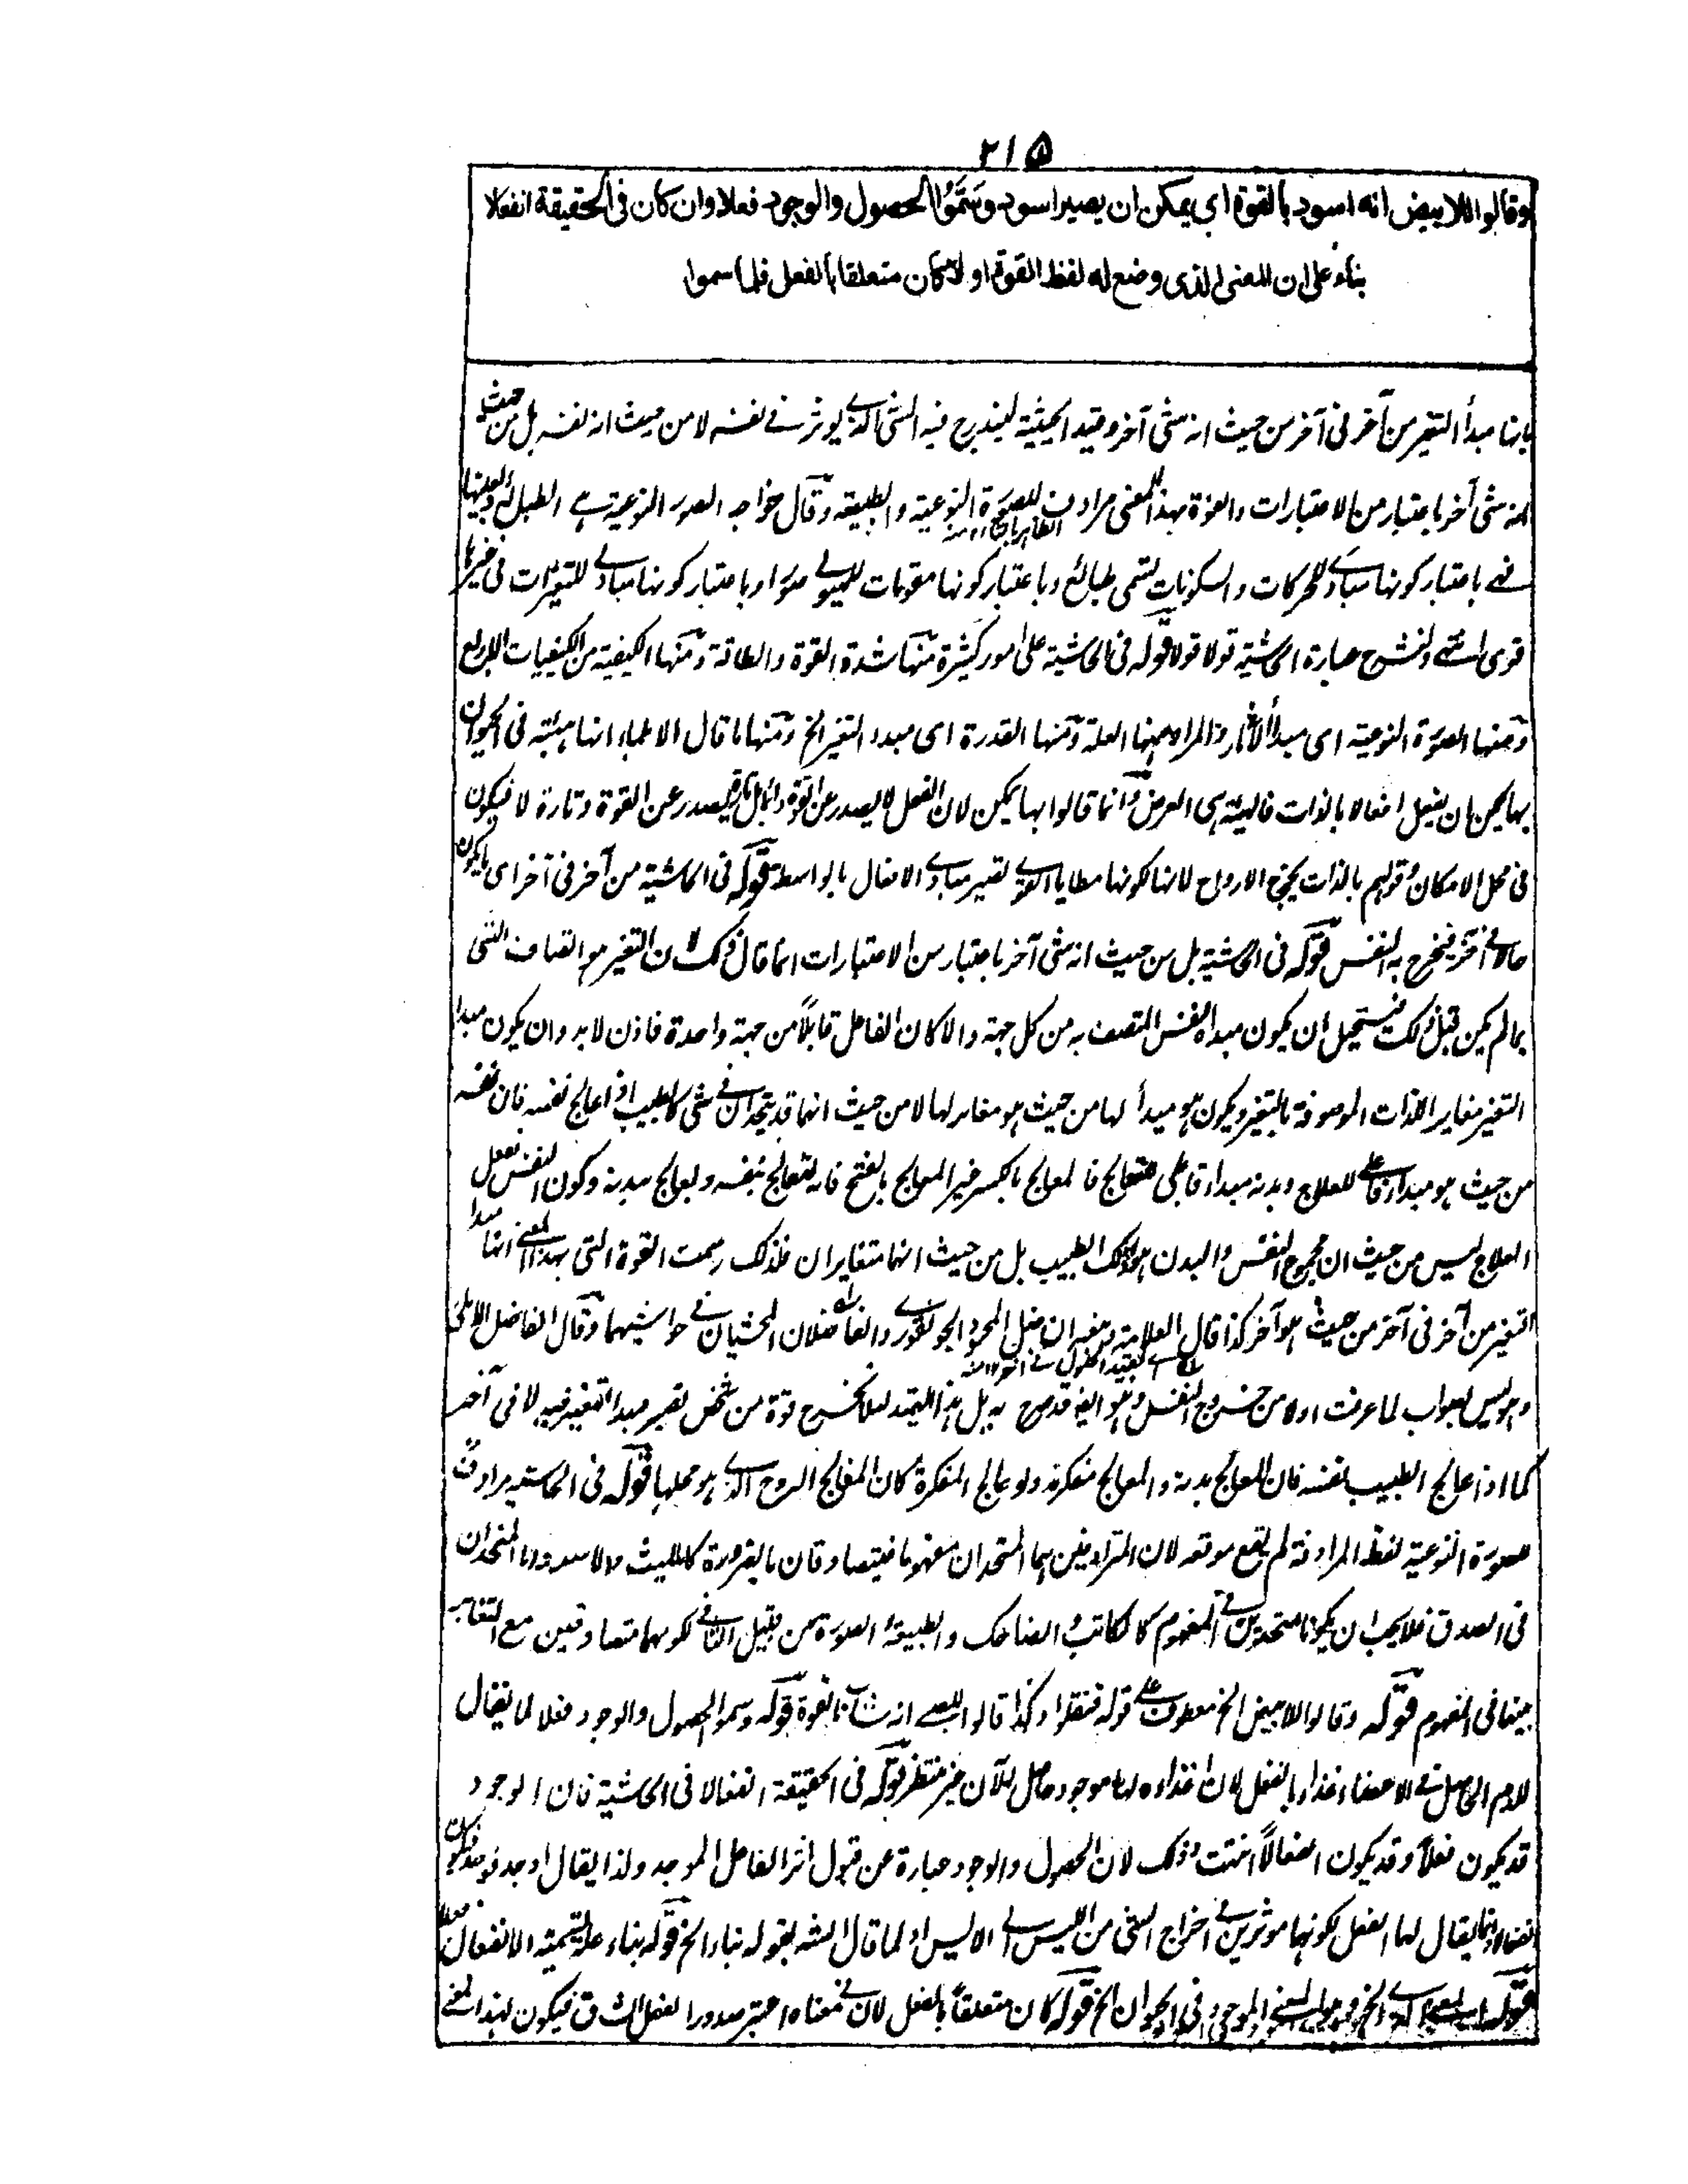 ٢١٥
وقالوا للابيض انه اسود بالقوة اي يمكن ان يصير اسود وسَمَّوُا الحصول والوجود فعلا وان كان فى الحقيقة انفعالا
بناءً على ان المعنى الذى وضع له لفظ القوة اولا كان متعلقا بالفعل فلما سموا
بانها مبدأ التغير من آخر فى آخر من حيث انه شئ آخر وقيد الحيثية ليندرج فيه الشئ الذى يوثر فى نفسه لا من حيث انه نفسه بل من حيث
انه شئ آخر باعتبار من الاعتبارات والقوة بهذا المعنى مرادف للصورة النوعية والطبيعة وقال خواجه الصور النوعية هى الطبائع بعينها
فهى باعتبار كونها مبادى للحركات والسكونات تسمى طبائع وباعتبار كونها مقومات للهيولى صورا وباعتبار كونها مبادى للتغيرات فى غيرها
قوى انتهى ولنشرح عبارة الحاشية قولا قولا قوله فى الحاشية على امور كثيرة منها شدة القوة والطاقة ومنها الكيفية من الكيفيات الاربع
ومنها الصورة النوعية اى مبدأ الآثار والمراد منها العلة ومنها القدرة اى مبدء التغير الخ ومنها ما قال الاطباء انها هيئة فى الحيوان
بها يمكن ان يفعل افعالا بالذات فالهيئة هى العرض وانما قالوا بها يمكن لان الفعل لا يصدر عن القوة دائما بل تارة يصدر عن القوة وتارة لا فيكون
فى محل الامكان وقولهم بالذات يخرج الارواح لانها لكونها مطايا القوى تصير مبادى الافعال بالواسطة قوله فى الحاشية من آخر فى آخر اى ما يكون
حالا فى آخر فيخرج به النفس قوله فى الحاشية بل من حيث انه شئ آخر باعتبار من الاعتبارات انما قال ذلك لان التغير هو اتصاف الشئ
بما لم يكن قبل ذلك فيستحيل ان يكون مبدأه نفس المتصف به من كل جهة والا كان الفاعل قابلاً من جهة واحدة فاذن لابد وان يكون مبدا
التغير مغايرا للذات الموصوفة بالتغير ويكون هو مبدأ لها من حيث هو مغاير لها لا من حيث انهما قد يتحدان فى شئ كالطبيب اذا عالج نفسه فان نفسه
من حيث هو مبدأ فاعلى للعلاج وبدنه مبداء قابلى فتعالج فالمعالج بالكسر غير المعالج بالفتح فانه يعالج بنفسه ويعالج ببدنه وكون النفس تفعل
العلاج ليس من حيث ان مجموع النفس والبدن هو ذلك الطبيب بل من حيث انهما متغايران فلذلك رسمت القوة التى بهذا المعنى انها مبدا
التغير من آخر فى آخر من حيث هو آخر كذا قال العلامة وغيره ان مثل المحمود الجونفورى والفاضلان المحشيان فى حواشيهما وقال الفاضل
وهو ليس بصواب لما عرفت اولا من خروج النفس وهو ايضا قد صرح به بل هذا القيد لئلا يخرج قوة من شخص تصير مبدا لتغير فيه لا فى آخر
كما اذا عالج الطبيب نفسه فان المعالج بدنه والمعالج متفكرة ولو عالج المتفكرة كان المعالج الروح الذى هو محلها قوله فى الحاشية مرادف
صورة النوعية لفظ المرادفة لم يقع موقعه لان المترادفين هما المتحدان مفهوما فيتصادقان بالضرورة كالليث والاسد واما المتحدان
فى الصدق فلا يجب ان يكونا متحدين فى المفهوم كالكاتب والضاحك والطبيعة والصورة من قبيل الثانى لكونهما متصادقين مع التغاير
بينهما فى المفهوم قوله وقالوا للابيض الخ معطوف على قوله فنقلوا وكذا قالوا للصبى انه شاب بالقوة قوله وسموا الحصول والوجود فعلا كما يقال
للدم الحاصل فى الاعضاء غذاء بالفعل لان غذاءه لها موجود حاصل الآن غير منتظر قوله فى الحقيقة انفعالا فى الحاشية فان الوجود
قد يكون فعلاً وقد يكون انفعالاً انتهت وذلك لان الحصول والوجود عبارة عن قبول اثر الفاعل الموجد ولذا يقال اوجد فوجد فيكون
انفعالا وانما يقال لها الفعل لكونها موثرين فى اخراج الشئ من الليس الى الايس او لما قال الشه بقوله بناء الخ قوله بناء علة لتسمية الانفعال فعلا
قوله ان المعنى الذى الخ وهو المعنى الموجود فى الحيوان الخ قوله كان متعلقاً بالفعل لان فى معناه اعتبر صدور الفعل الشاق فيكون لهذا المعنى